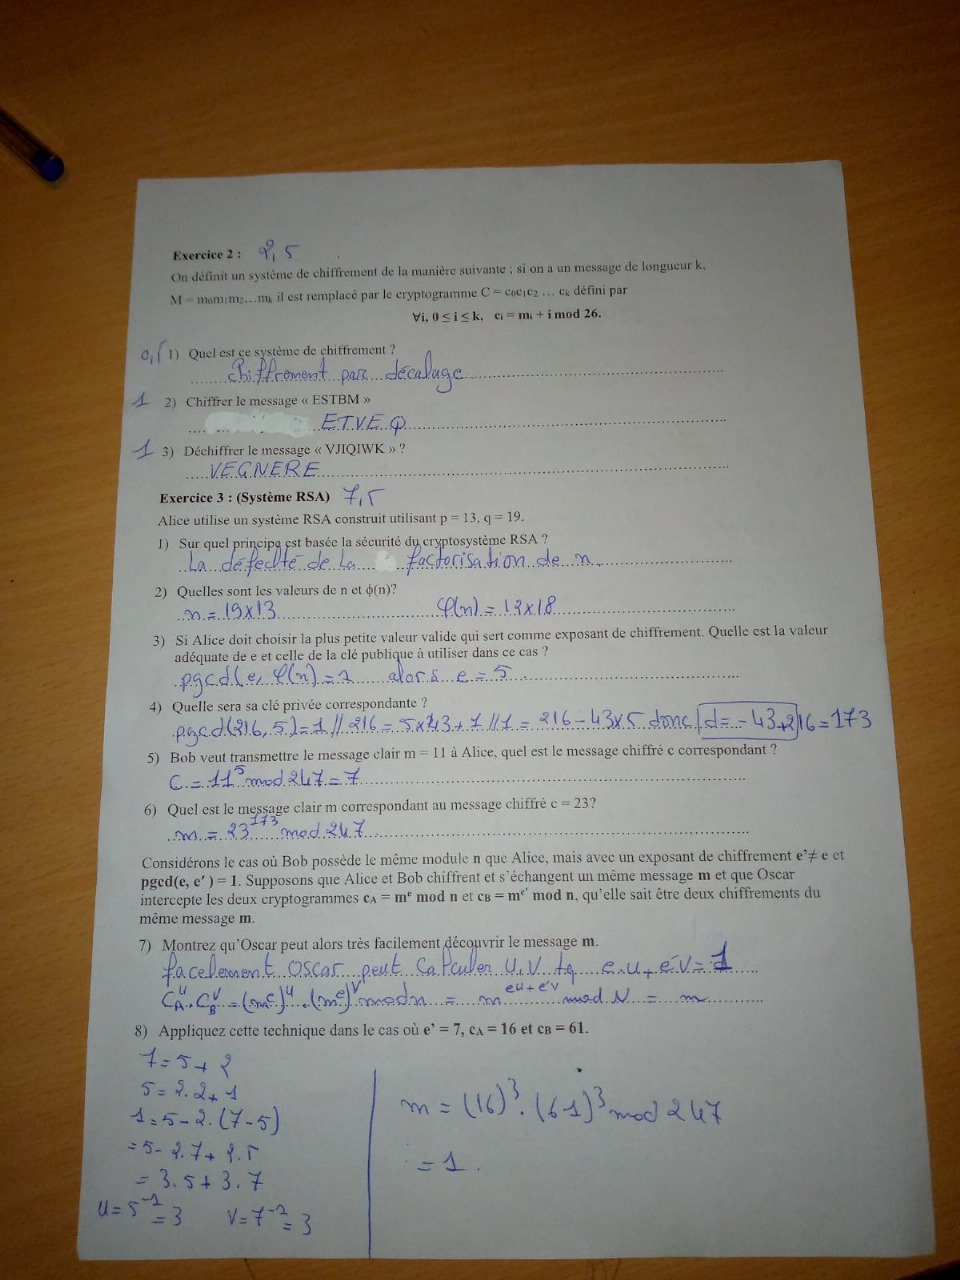 Exercice 2 : 2,5
On définit un système de chiffrement de la manière suivante ; si on a un message de longueur k,
M = m₀m₁m₂…mₖ il est remplacé par le cryptogramme C = c₀c₁c₂ … cₖ défini par
∀i, 0 ≤ i ≤ k, cᵢ = mᵢ + i mod 26.
0,5 1) Quel est ce système de chiffrement ?
chiffrement par décalage
1 2) Chiffrer le message « ESTBM »
ETVEQ
1 3) Déchiffrer le message « VJIQIWK » ?
VEGNERE
Exercice 3 : (Système RSA) 7,5
Alice utilise un système RSA construit utilisant p = 13, q = 19.
1) Sur quel principe est basée la sécurité du cryptosystème RSA ?
La défeclté de la factorisation de n.
2) Quelles sont les valeurs de n et ϕ(n)?
n = 19x13 φ(n) = 12x18
3) Si Alice doit choisir la plus petite valeur valide qui sert comme exposant de chiffrement. Quelle est la valeur
adéquate de e et celle de la clé publique à utiliser dans ce cas ?
pgcd(e, φ(n)) = 1 alors e = 5
4) Quelle sera sa clé privée correspondante ?
pgcd(216, 5) = 1 // 216 = 5x43 + 1 // 1 = 216 - 43x5 donc d = -43 + 216 = 173
5) Bob veut transmettre le message clair m = 11 à Alice, quel est le message chiffré c correspondant ?
C = 11⁵ mod 247 = 7
6) Quel est le message clair m correspondant au message chiffré c = 23?
m = 23¹⁷³ mod 247
Considérons le cas où Bob possède le même module n que Alice, mais avec un exposant de chiffrement e'≠ e et
pgcd(e, e') = 1. Supposons que Alice et Bob chiffrent et s'échangent un même message m et que Oscar
intercepte les deux cryptogrammes cA = mᵉ mod n et cB = mᵉ' mod n, qu'elle sait être deux chiffrements du
même message m.
7) Montrez qu'Oscar peut alors très facilement découvrir le message m.
facelement OSCar peut Calculer U,V tq e.u + e'v = 1
C_A^u . C_B^v = (m^e)^u . (m^e)^v mod n = m^{eu+e'v} mod N = m
8) Appliquez cette technique dans le cas où e' = 7, cA = 16 et cB = 61.
7 = 5 + 2
5 = 2.2 + 1
1 = 5 - 2.(7-5)
= 5 - 2.7 + 2.5
= 3.5 + 3.7
U = 5⁻¹ = 3 V = 7⁻¹ = 3
m = (16)³ . (61)³ mod 247
= 1.